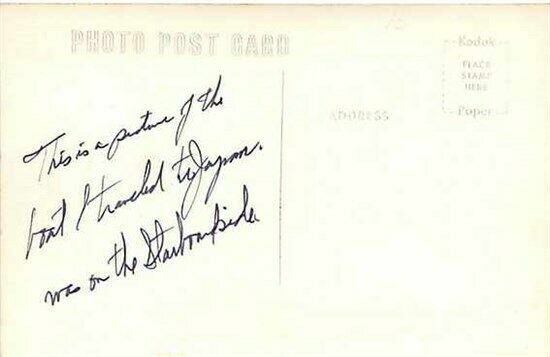 PHOTO POST CARD
Kodak
PLACE
STAMP
HERE
Paper
ADDRESS
This is a picture of the
boat I traveled to Japan.
was on the Starboard side